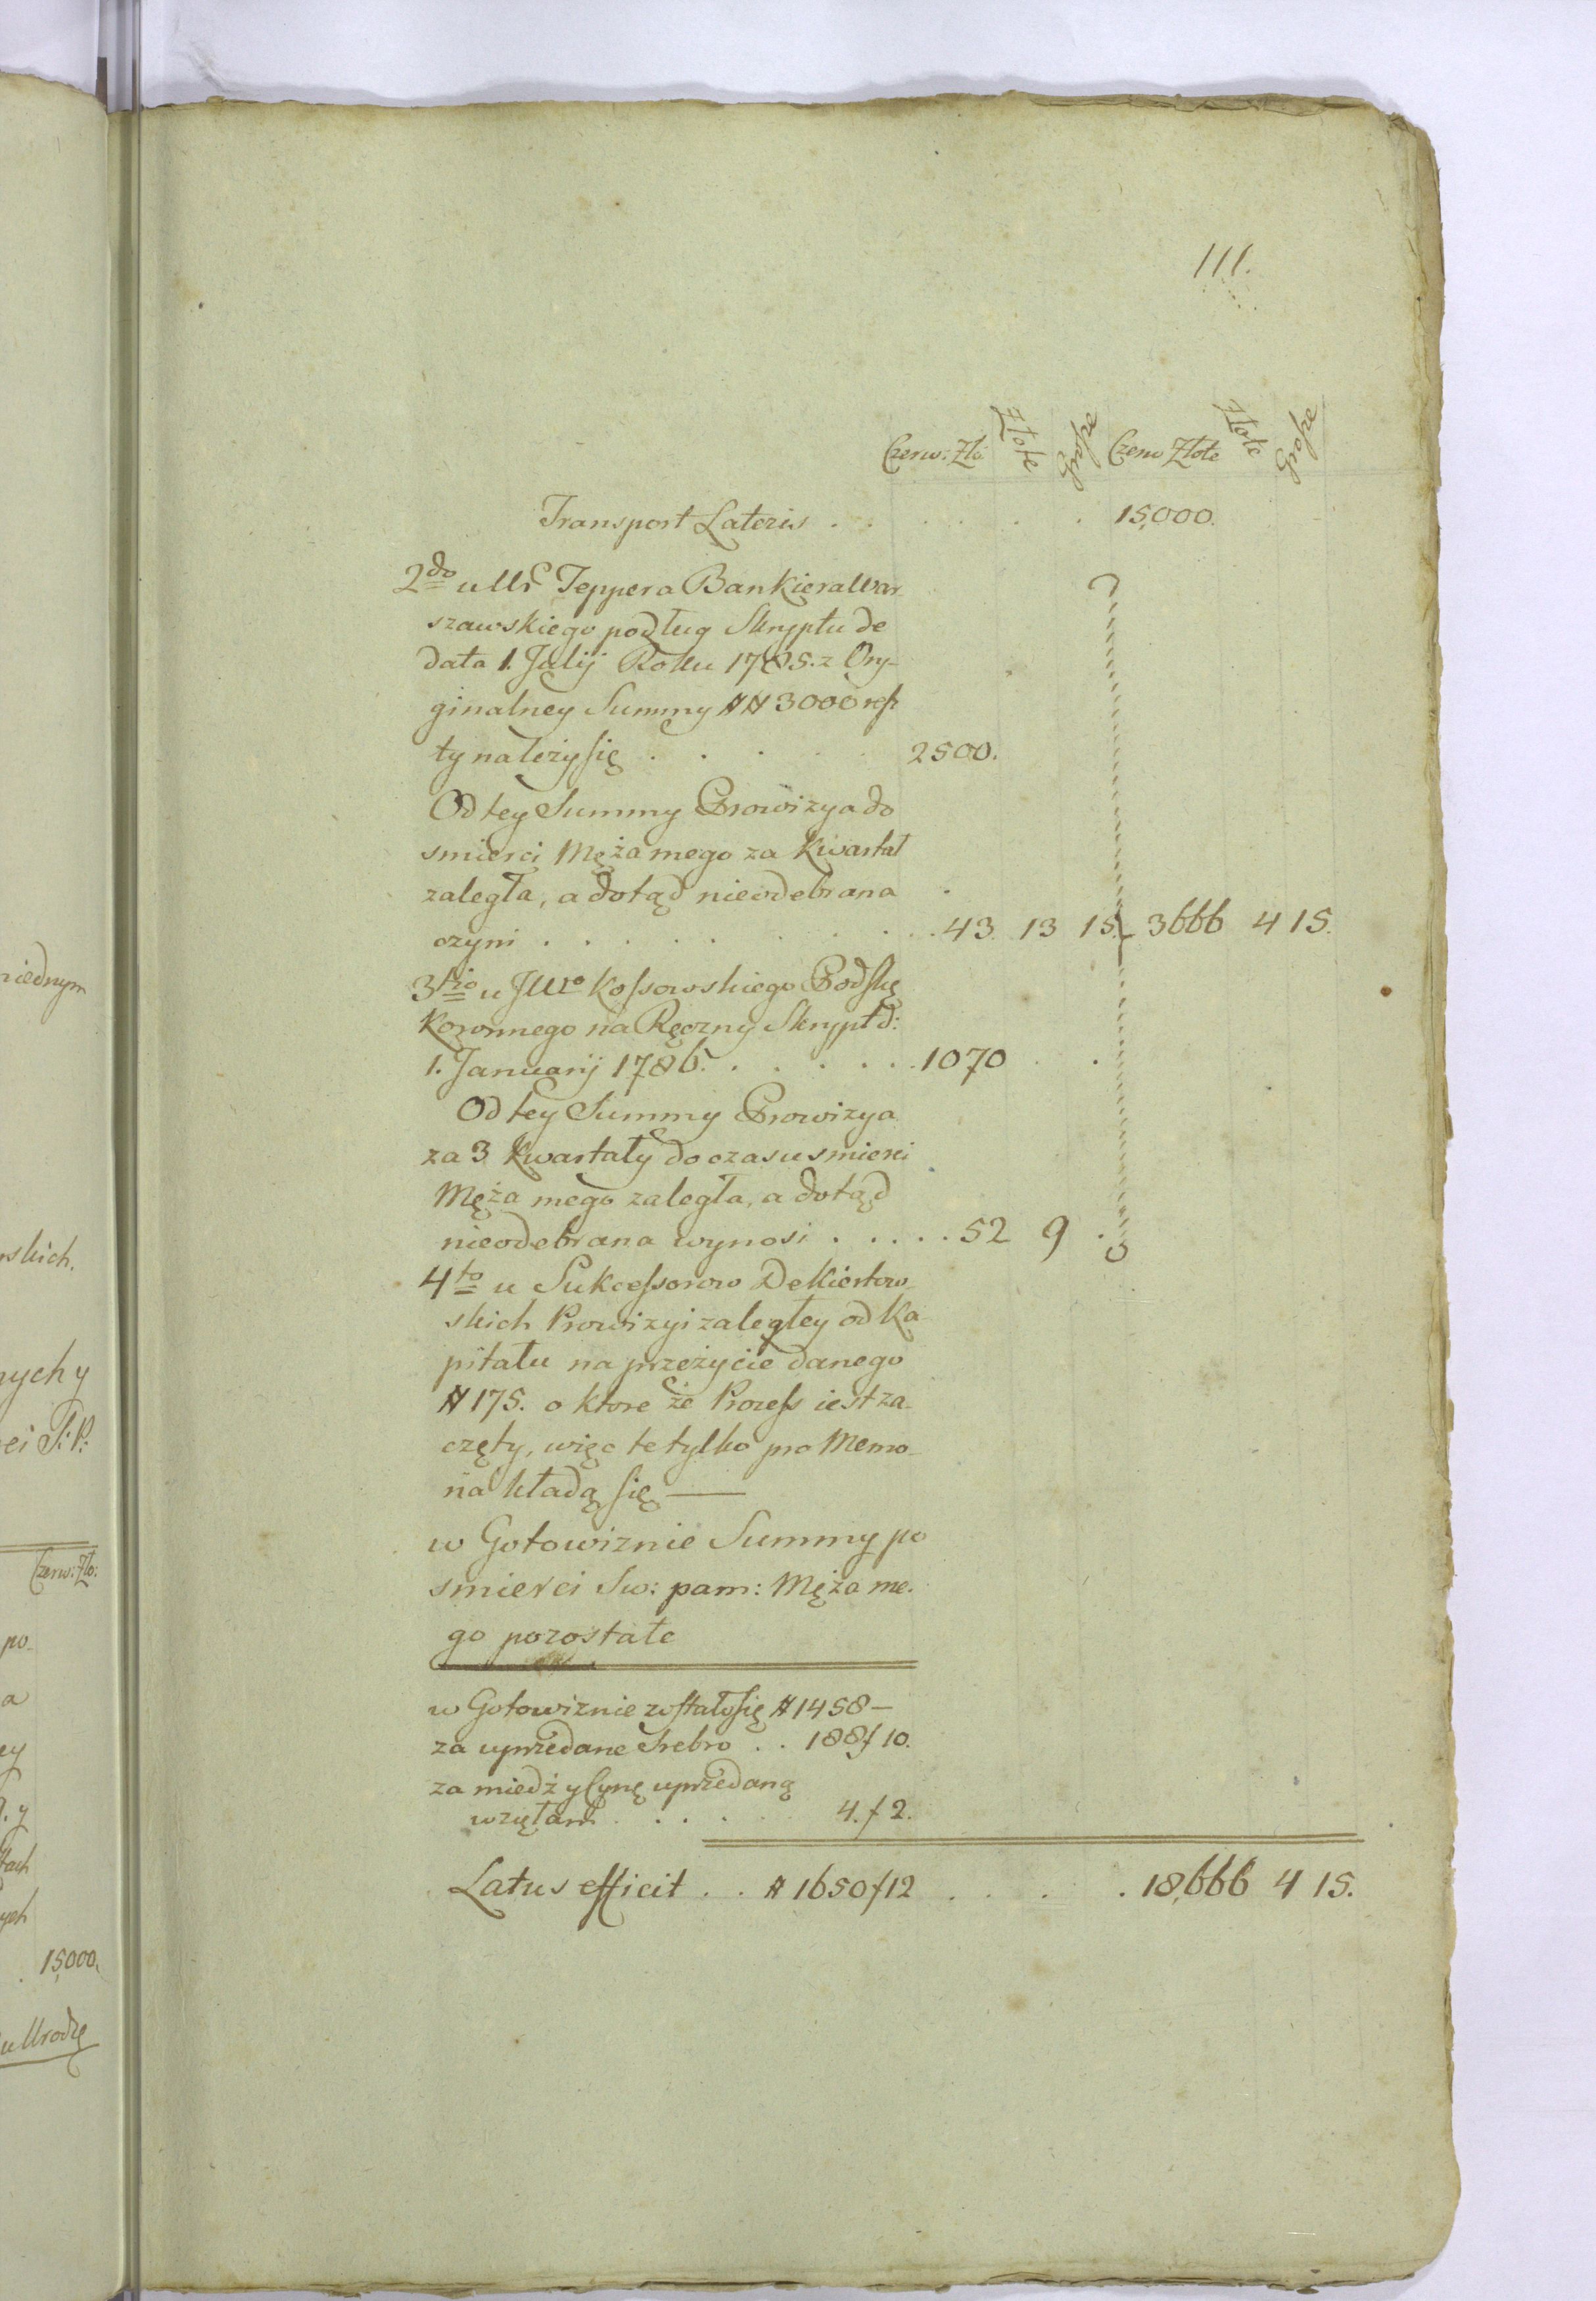 111.
Czerw: Zło: Złote Grosze Czerw Złote Złote Grosze
Transport Lateris . . . . . . 15,000.
2do u Ur Teppera Bankiera War
szawskiego podług Skryptu de
data 1. Julij Roku 1785. z Ory-
ginalney Summy ## 3000 resz
ty należy się . . . . 2500.
Od tey Summy Prowizya do
smierci Męża mego za Kwartał
zaległa, a dotąd nieodebrana
czyni . . . . . . . . . 43. 13 15. 3666 4 15.
3tio u JWo Kossowskiego Podskę
Koronnego na Ręczny Skrypt d:
1. Januarij 1786. . . . . . 1070
Od tey Summy Prowizya
za 3 Kwartały do czasu smierci
Męża mego zaległa, a dotąd
nieodebrana wynosi . . . . . 52 9 .
4to u Sukcessorow Dekiertow
skich Prowizyi zaległey od Ka
pitału na przeżycie danego
# 175. o ktore że Process iest za-
częty, więc te tylko pro Memo-
ria kładą się —
w Gotowiznie Summy po
smierci Sw: pam: Męża me.
go pozostałe
w Gotowiznie zostało się # 1458 —
za uprzedane Srebro . . 188 f 10.
za miedź y Cynę uprzedaną
wzięłam . . . . 4. f 2.
Latus efficit . . # 1650 f 12 . . . . 18,666 4 15.
niednym
skich.
nych y
ei S: P:
Czerw: Zło:
po-
a
ey
y
tach
ych
. 15,000.
u Urodzę